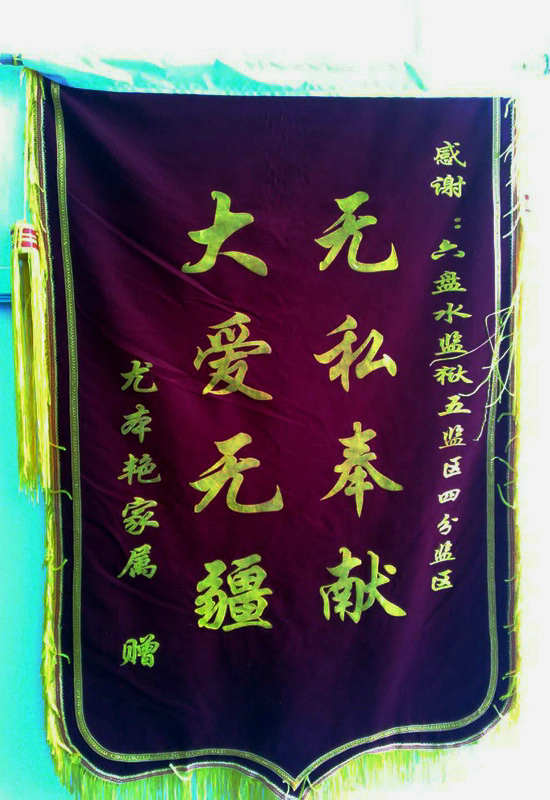 感谢：六盘水监狱五监区四分监区
无私奉献
大爱无疆
尤本艳家属 赠